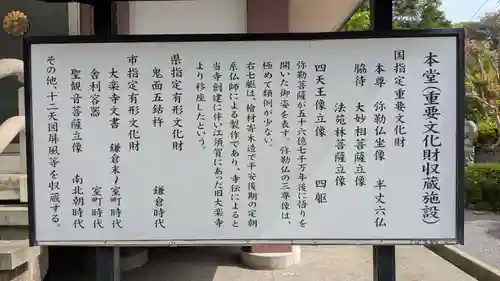 本堂(重要文化財収蔵施設)
国指定重要文化財
本尊 弥勒仏坐像 半丈六仏
脇待 大妙相菩薩立像
法苑林菩薩立像
四天王像立像 四躯
弥勒菩薩が五十六億七千万年後に悟りを
開いた御姿を表す。弥勒仏の三尊像は、
極めて類例が少ない。
右七躯は、檜材寄木造で平安後期の定朝
系仏師による製作であり、寺伝によると
当寺創建に伴い江須賀にあった旧大楽寺
より移座したという。
県指定有形文化財
鬼面五鈷杵 鎌倉時代
市指定有形文化財
大楽寺文書 鎌倉末〜室町時代
舎利容器 室町時代
聖観音菩薩立像 南北朝時代
その他、十二天図屏風等を収蔵する。